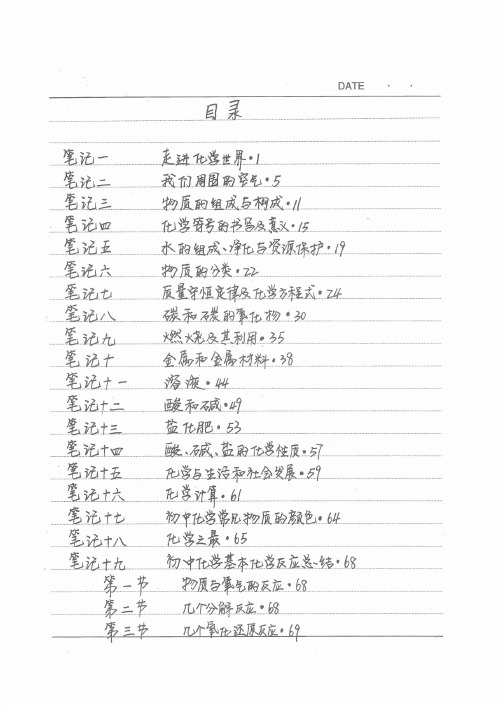 DATE · ·
目录
笔记一 走进化学世界·1
笔记二 我们周围的空气·5
笔记三 物质的组成与构成·11
笔记四 化学符号的书写及意义·15
笔记五 水的组成、净化与资源保护·19
笔记六 物质的分类·22
笔记七 质量守恒定律及化学方程式·24
笔记八 碳和碳的氧化物·30
笔记九 燃烧及其利用·35
笔记十 金属和金属材料·38
笔记十一 溶液·44
笔记十二 酸和碱·49
笔记十三 盐化肥·53
笔记十四 酸、碱、盐的化学性质·57
笔记十五 化学与生活和社会发展·59
笔记十六 化学计算·61
笔记十七 初中化学常见物质的颜色·64
笔记十八 化学之最·65
笔记十九 初中化学基本化学反应总结·68
第一节 物质与氧气的反应·68
第二节 几个分解反应·68
第三节 几个氧化还原反应·69